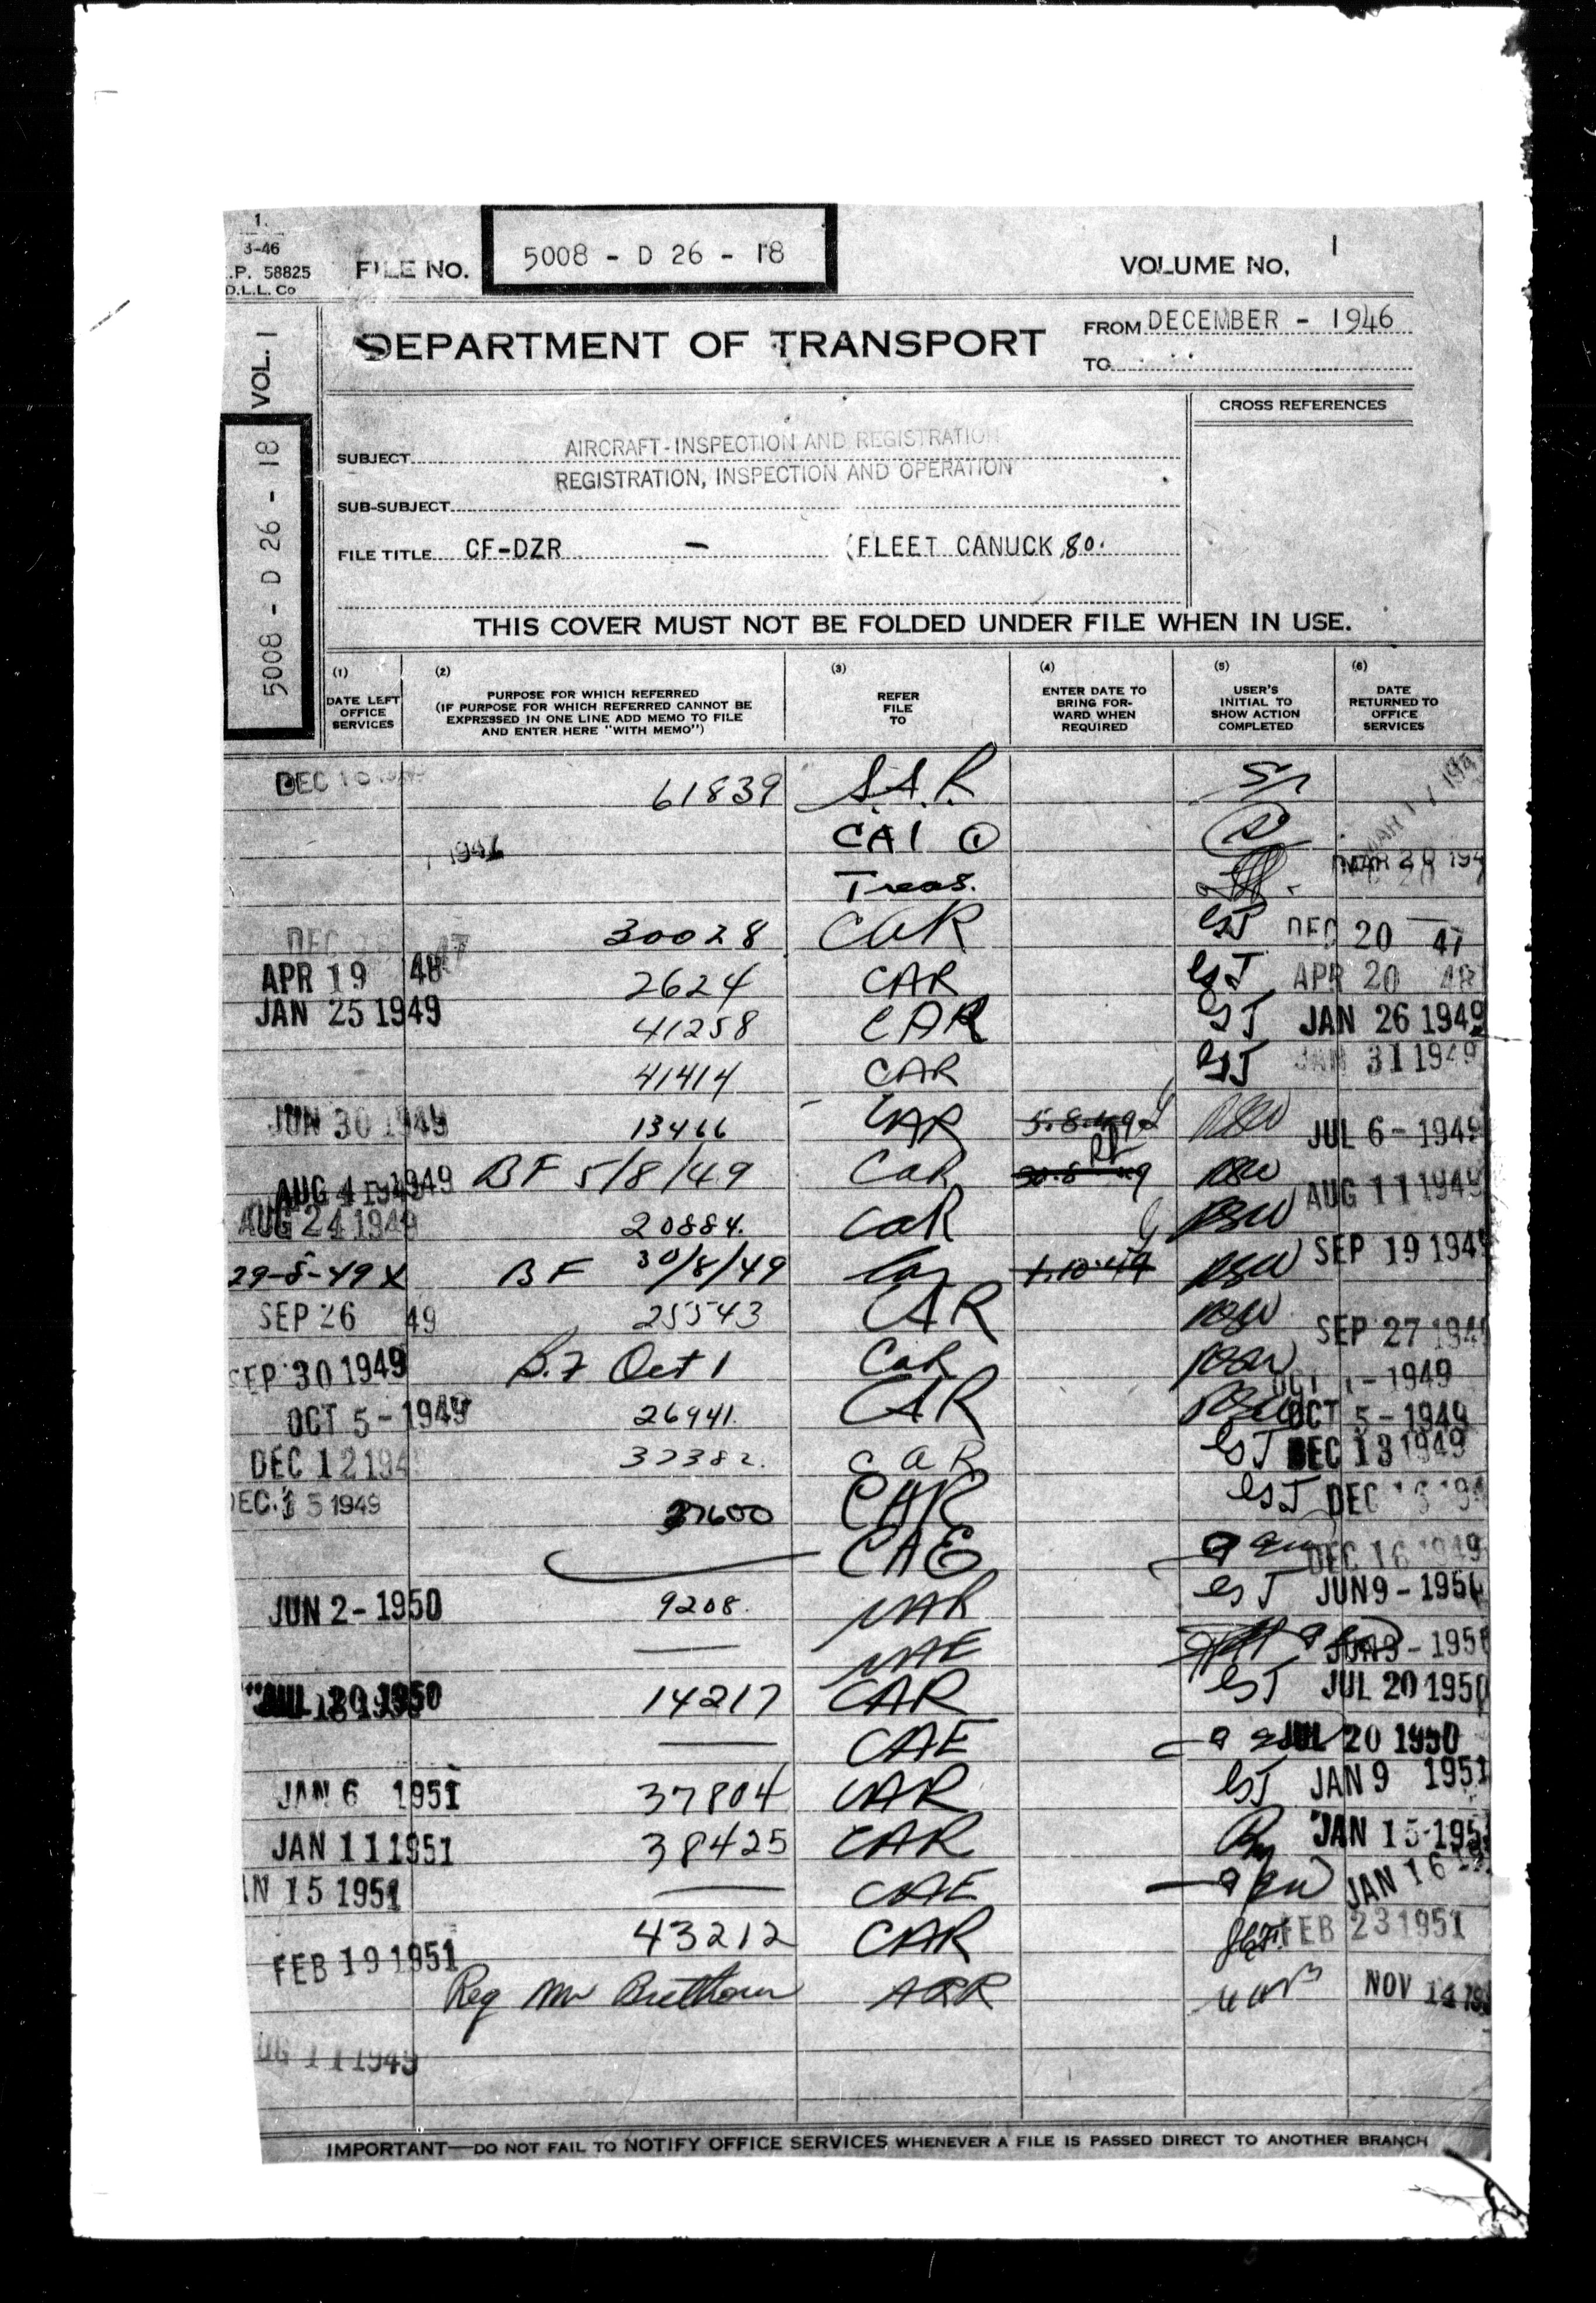 1.
3-46
.P. 58825
D.L.L. Co
FILE NO. 5008 - D 26 - 18
VOLUME NO. 1
VOL. 1
5008 - D 26 - 18
DEPARTMENT OF TRANSPORT
FROM DECEMBER - 1946
TO
CROSS REFERENCES
SUBJECT AIRCRAFT-INSPECTION AND REGISTRATION
REGISTRATION, INSPECTION AND OPERATION
SUB-SUBJECT
FILE TITLE CF-DZR - (FLEET CANUCK 80.
THIS COVER MUST NOT BE FOLDED UNDER FILE WHEN IN USE.
(1) DATE LEFT OFFICE SERVICES
(2) PURPOSE FOR WHICH REFERRED (IF PURPOSE FOR WHICH REFERRED CANNOT BE EXPRESSED IN ONE LINE ADD MEMO TO FILE AND ENTER HERE "WITH MEMO")
(3) REFER FILE TO
(4) ENTER DATE TO BRING FORWARD WHEN REQUIRED
(5) USER'S INITIAL TO SHOW ACTION COMPLETED
(6) DATE RETURNED TO OFFICE SERVICES
DEC 61839 S.A.R.
1946 CAI 1
Treas. MAR 20 194
DEC 47 30028 CAR EST DEC 20 47
APR 19 48 2624 CAR EST APR 20 48
JAN 25 1949 41258 CAR EST JAN 26 1949
41414 CAR EST JAN 31 1949
JUN 30 1949 13466 CAR 5.8.49 RSW JUL 6- 1949
AUG 4 1949 BF 5/8/49 CAR 30.8.49 RSW AUG 11 1949
AUG 24 1949 20884. CAR RSW
29-8-49 BF 30/8/49 Car 1.10.49 RSW SEP 19 194
SEP 26 49 25543 CAR RSW SEP 27 194
SEP 30 1949 B.F Oct 1 CAR RSW OCT 1-1949
OCT 5- 1949 26941. CAR RSW OCT 5-1949
DEC 12 194 37382. CAR EST DEC 13 1949
DEC. 15 1949 37600 CAR EST DEC
CAE DEC 16 1949
JUN 2- 1950 9208. CAR EST JUN 9- 195
CAE JUN 9- 195
JUL 1950 14217 CAR EST JUL 20 1950
CAE JUL 20 1950
JAN 6 1951 37804 CAR EST JAN 9 1951
JAN 11 1951 38425 CAR JAN 15-195
AN 15 1951 CAE JAN 16
FEB 19 1951 43212 CAR FEB 23 1951
Req Mr NOV 14 195
UG 11 1949
IMPORTANT—DO NOT FAIL TO NOTIFY OFFICE SERVICES WHENEVER A FILE IS PASSED DIRECT TO ANOTHER BRANCH